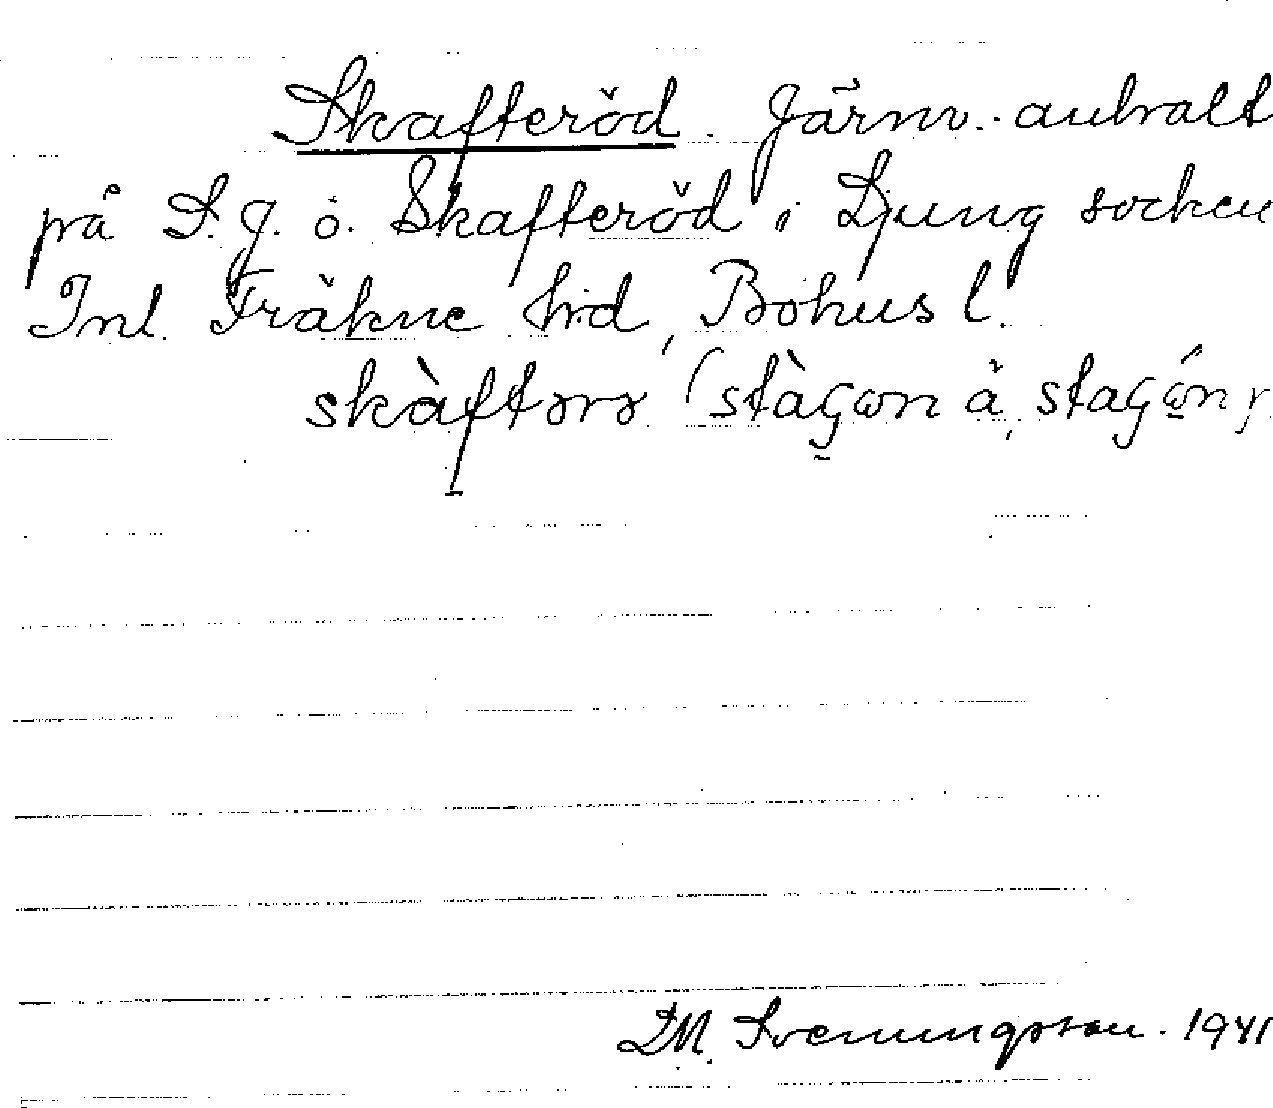 Skafteröd. Järnv. anhalt
på S. J. ö. Skafteröd i Ljung socken
Inl. Fräkne hd, Bohus l.
skàftərə (stàgɷn å, stagɷ́n).
DM. Svenningsson. 1941